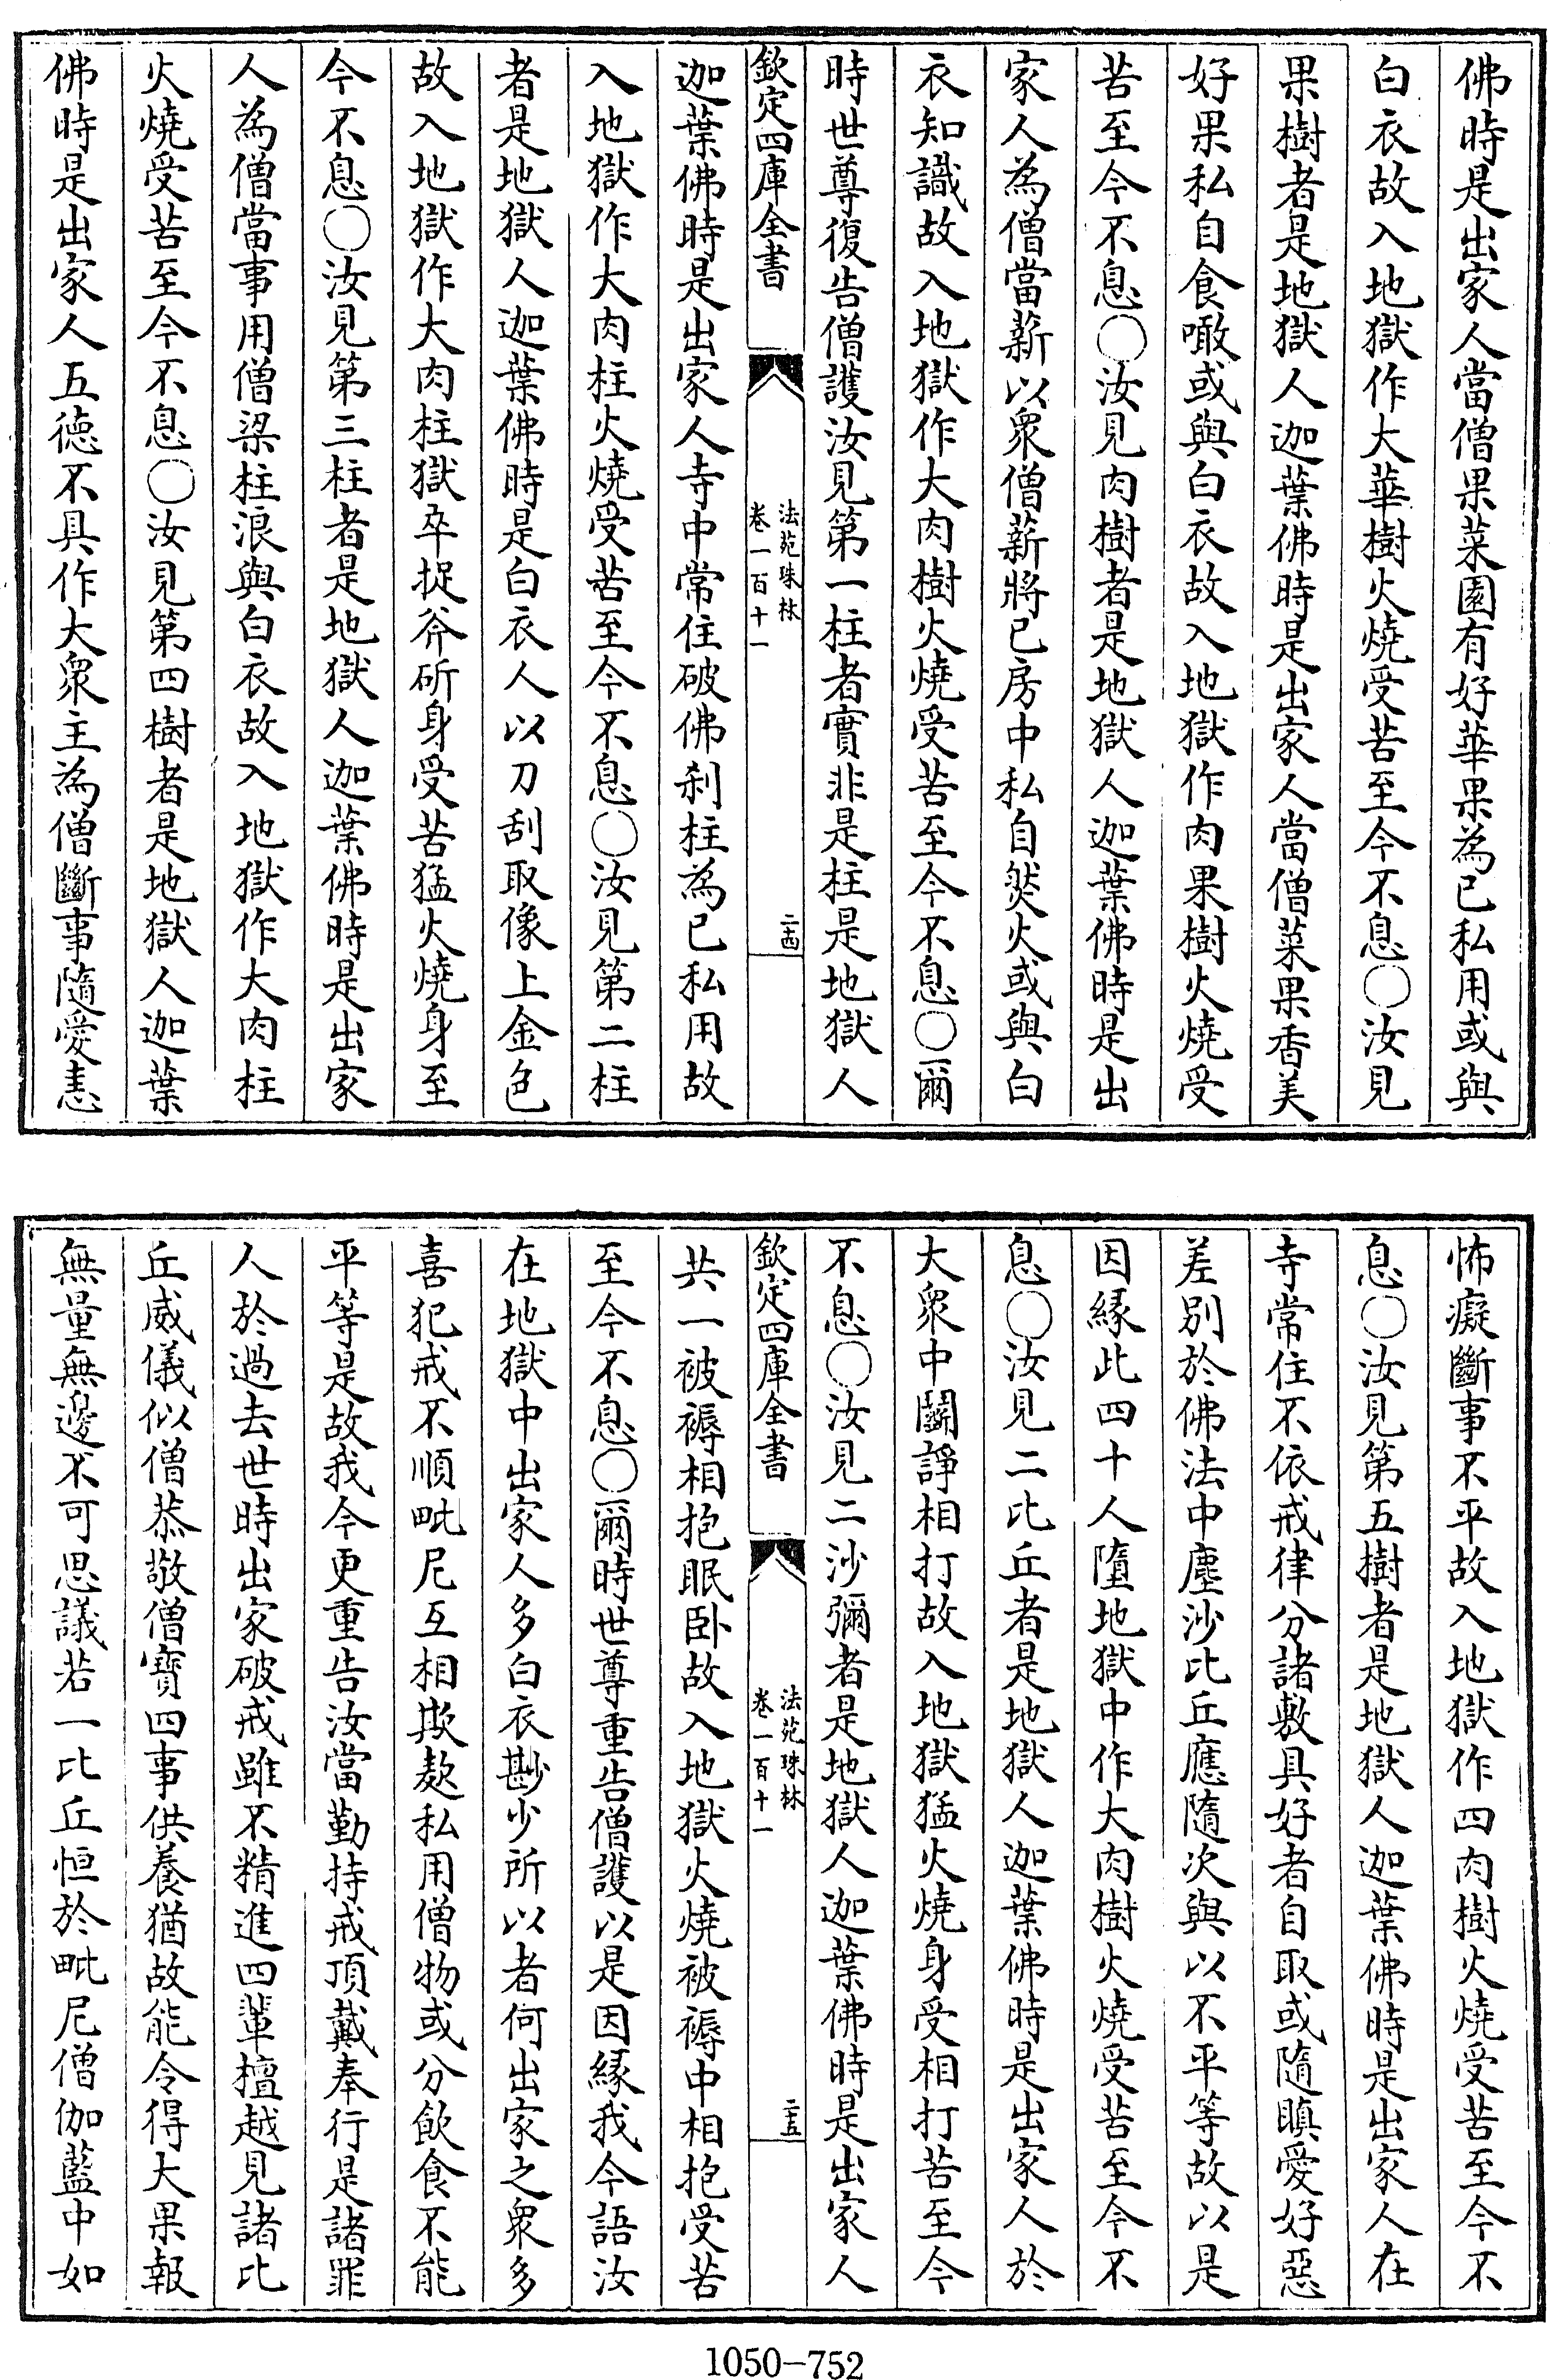 佛時是出家人當僧果菜園有好華果為已私用或與
白衣故入地獄作大華樹火燒受苦至今不息○汝見
果樹者是地獄人迦葉佛時是出家人當僧菜果香美
好果私自食噉或與白衣故入地獄作肉果樹火燒受
苦至今不息○汝見肉樹者是地獄人迦葉佛時是出
家人為僧當薪以衆僧薪將已房中私自然火或與白
衣知識故入地獄作大肉樹火燒受苦至今不息○爾
時世尊復告僧護汝見第一柱者實非是柱是地獄人
欽定四庫全書
法苑珠林
卷一百十一
二十四
迦葉佛時是出家人寺中常住破佛刹柱為已私用故
入地獄作大肉柱火燒受苦至今不息○汝見第二柱
者是地獄人迦葉佛時是白衣人以刀刮取像上金色
故入地獄作大肉柱獄卒捉斧斫身受苦猛火燒身至
今不息○汝見第三柱者是地獄人迦葉佛時是出家
人為僧當事用僧梁柱浪與白衣故入地獄作大肉柱
火燒受苦至今不息○汝見第四樹者是地獄人迦葉
佛時是出家人五徳不具作大衆主為僧斷事隨愛恚
怖癡斷事不平故入地獄作四肉樹火燒受苦至今不
息○汝見第五樹者是地獄人迦葉佛時是出家人在
寺常住不依戒律分諸敷具好者自取或隨瞋愛好惡
差別於佛法中塵沙比丘應隨次與以不平等故以是
因緣此四十人墮地獄中作大肉樹火燒受苦至今不
息○汝見二比丘者是地獄人迦葉佛時是出家人於
大衆中鬭諍相打故入地獄猛火燒身受相打苦至今
不息○汝見二沙彌者是地獄人迦葉佛時是出家人
欽定四庫全書
法苑珠林
卷一百十一
二十五
共一被褥相抱眠卧故入地獄火燒被褥中相抱受苦
至今不息○爾時世尊重告僧護以是因緣我今語汝
在地獄中出家人多白衣尠少所以者何出家之衆多
喜犯戒不順毗尼互相欺㪍私用僧物或分飲食不能
平等是故我今更重告汝當勤持戒頂戴奉行是諸罪
人於過去世時出家破戒雖不精進四輩檀越見諸比
丘威儀似僧恭敬僧寶四事供養猶故能令得大果報
無量無邊不可思議若一比丘恒於毗尼僧伽藍中如
1050-752